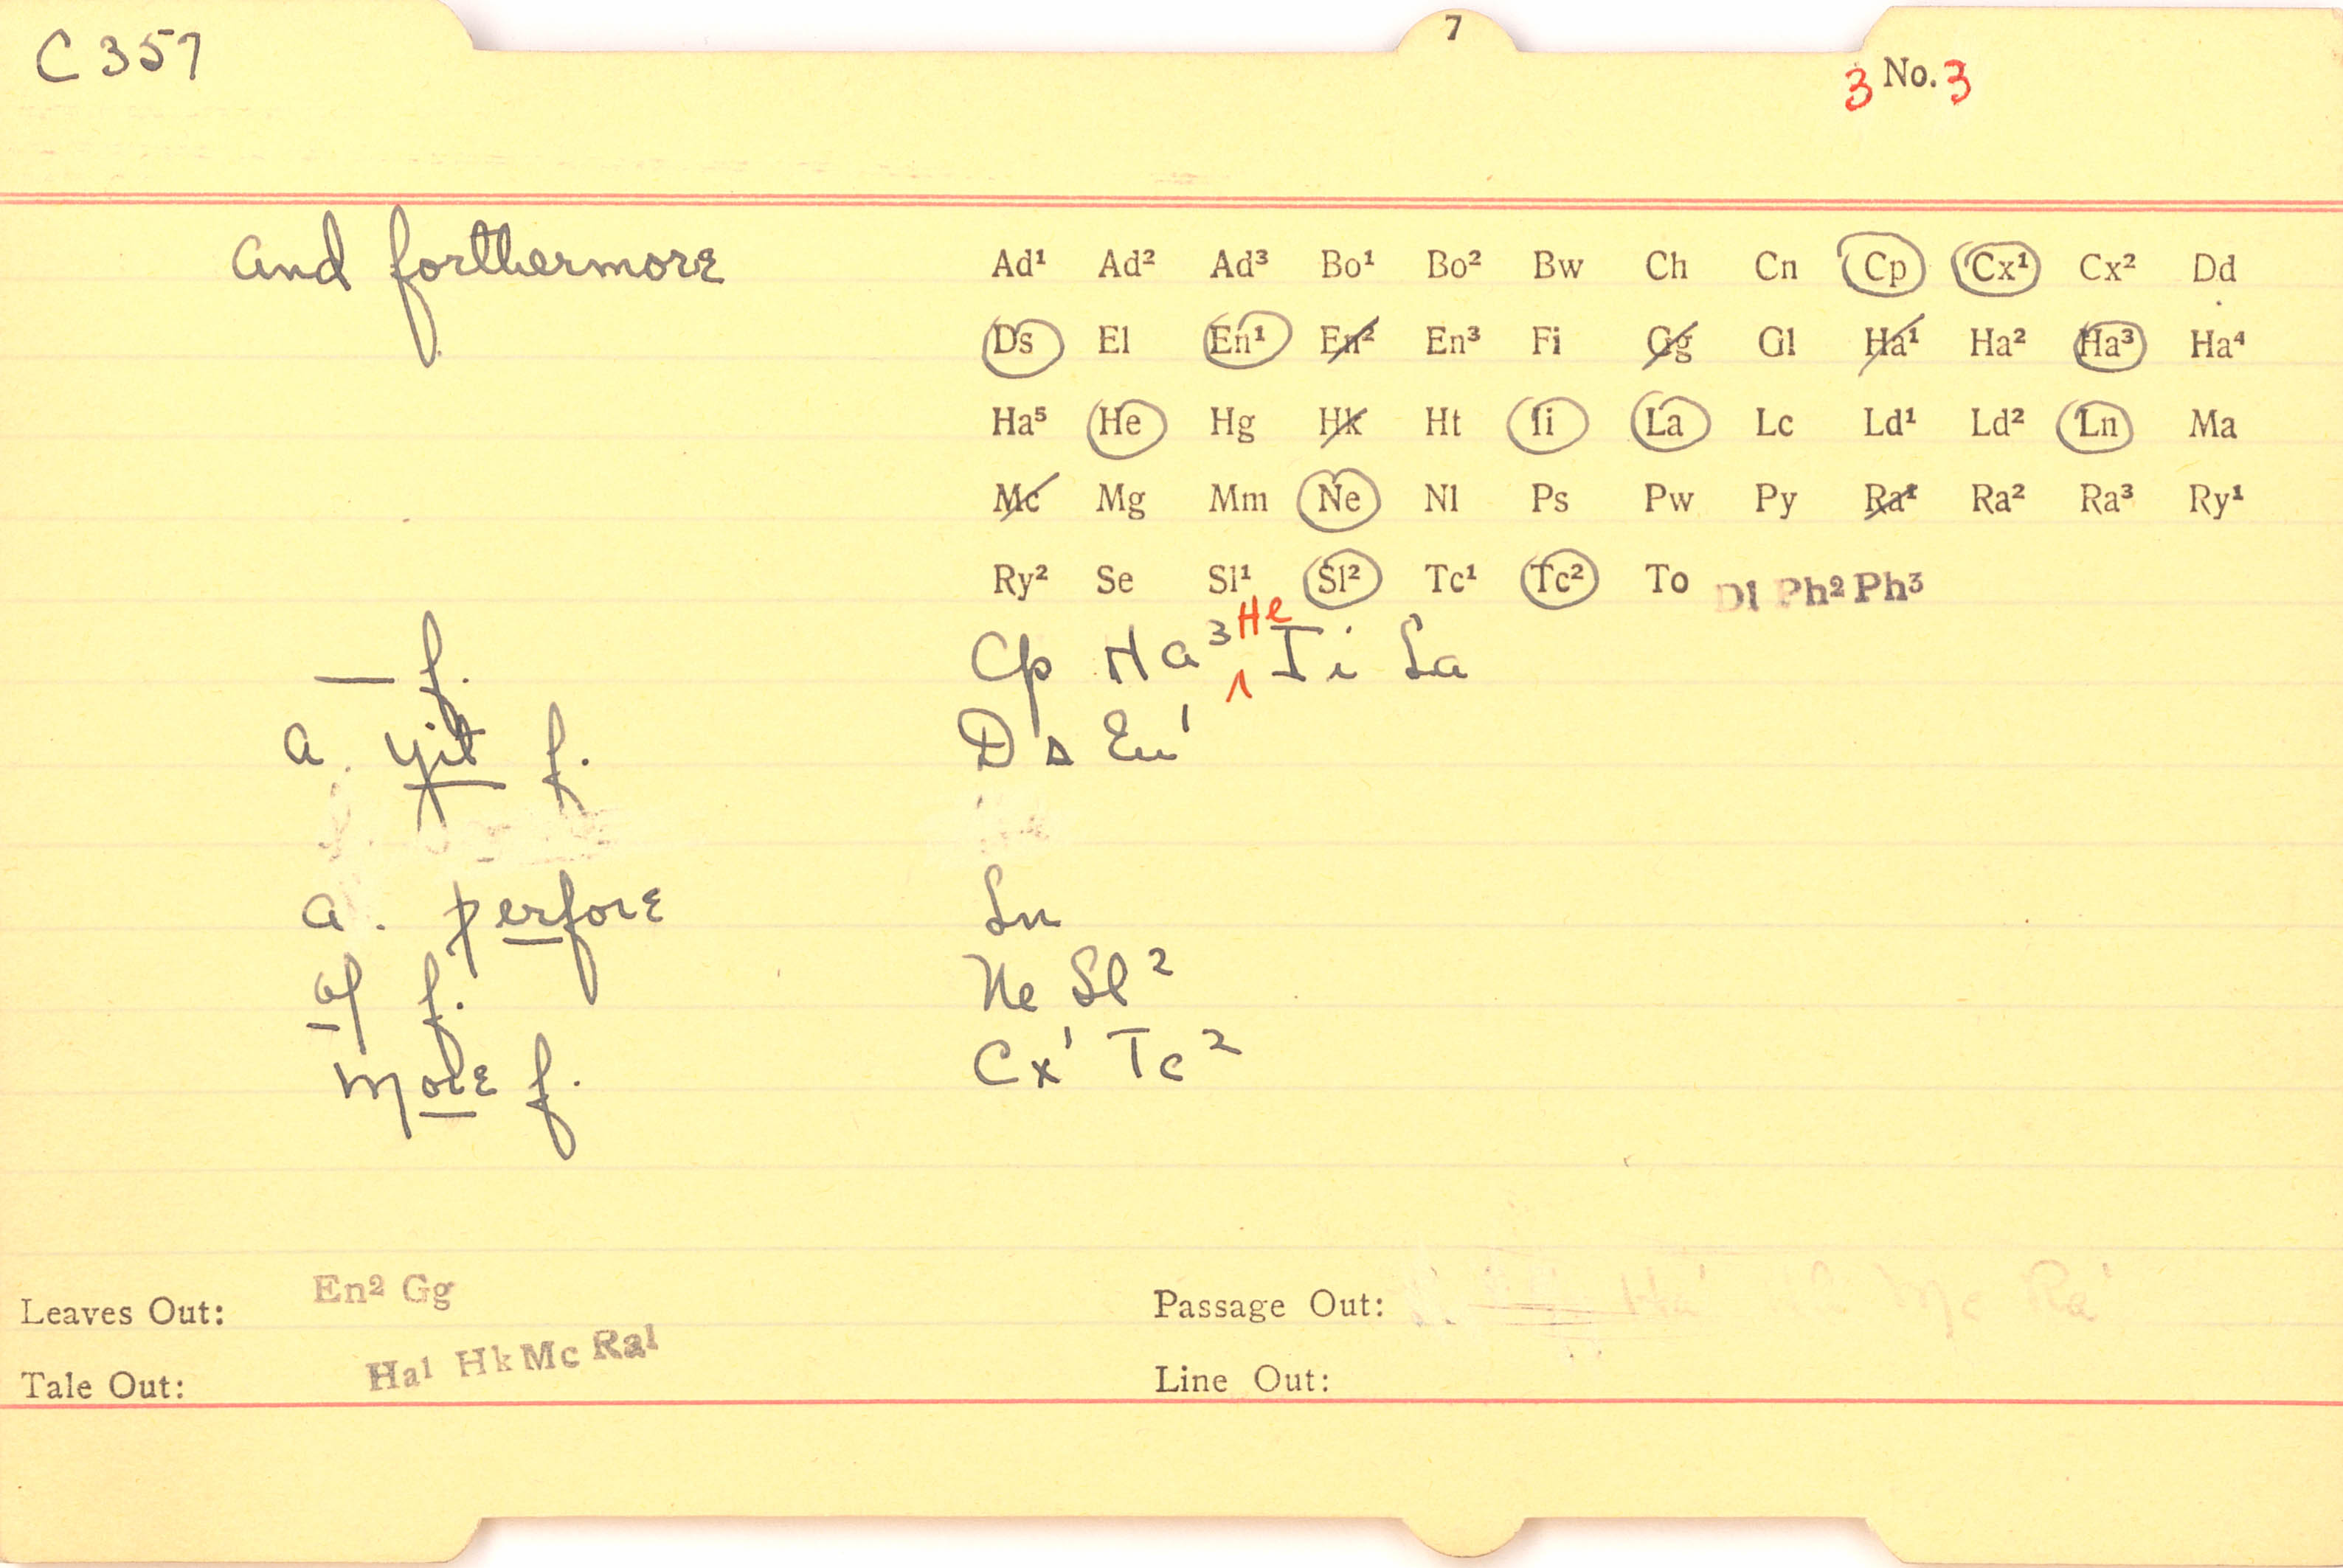 C 357
7
3 No. 3
and forthermore
Ad¹ Ad² Ad³ Bo¹ Bo² Bw Ch Cn Cp Cx¹ Cx² Dd
Ds El En¹ En² En³ Fi Gg Gl Ha¹ Ha² Ha³ Ha⁴
Ha⁵ He Hg Hk Ht Ii La Lc Ld¹ Ld² Ln Ma
Mc Mg Mm Ne Nl Ps Pw Py Ra¹ Ra² Ra³ Ry¹
Ry² Se Sl¹ Sl² Tc¹ Tc² To Dl Ph² Ph³
— f. Cp Ha³ He Ii La
a. yit f. Ds En¹
a. þerfore Ln
of f. Ne Sl²
more f. Cx¹ Tc²
Leaves Out: En² Gg
Passage Out: Ha¹ Mc Ra¹
Tale Out: Ha¹ Hk Mc Ra¹
Line Out: